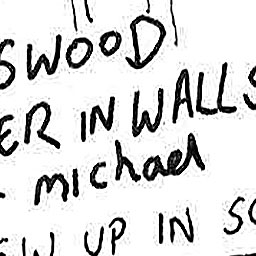 SWOOD
ER IN WALLS
michael
EW UP IN SC